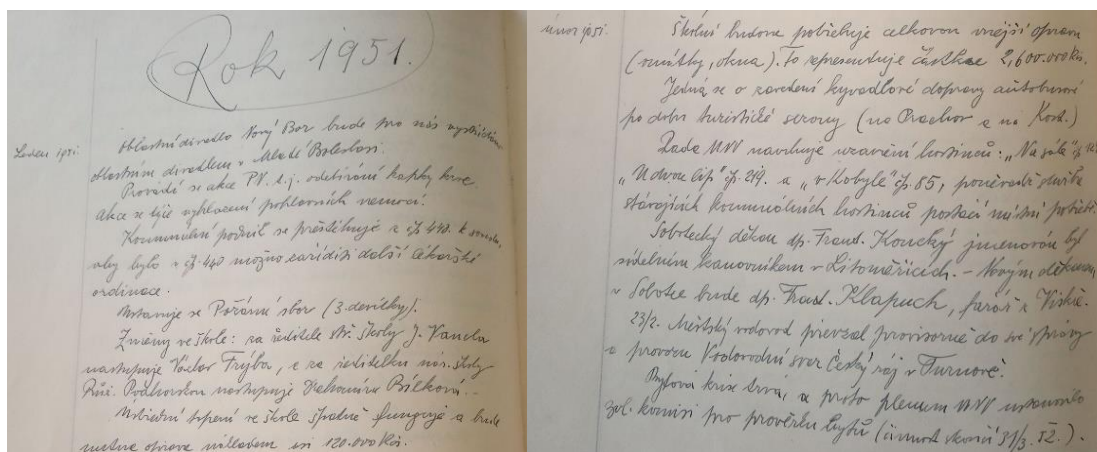 Rok 1951.
Leden 1951.
Oblastní divadlo Nový Bor bude pro nás vystřídáno
oblastním divadlem v Mladé Boleslavi.
Provádí se akce PN. t.j. odebírání kapky krve.
Akce se týče vyhlazení pohlavních nemocí.
Komunální podnik se přestěhuje z čp. 440. k
aby bylo v čp. 440 možno zaříditi další lékařské
ordinace.
Ustavuje se Požární sbor (3 desítky).
Změny ve škole: za ředitele stř. školy J. Vancla
nastupuje Václav Frýba, a za ředitelku nár. školy
Růž. Podhorskou nastupuje Drahomíra Bílková. -
Ústřední topení ve škole špatně funguje a bude
nutna oprava nákladem asi 120.000 Kčs.
únor 1951.
Školní budova potřebuje celkovou vnější opravu
(omítky, okna). To representuje částku 2,600.000 Kčs.
Jedná se o zavedení kyvadlové dopravy autobusové
po dobu turistické sezony (na Prachov a na Kost.)
Rada MNV navrhuje uzavření hostinců: „Na sále" čp.
„U dvou čáp" čp. 219. a „v Kobyle" čp. 85, poněvadž služba
stávajících komunálních hostinců postačí místní potřebě.
Sobotecký děkan dp. Frant. Koucký jmenován byl
sídelním kanovníkem v Litoměřicích. - Novým děkanem
v Sobotce bude dp. Frant. Klapuch, farář z
23/2. Městský vodovod převzal provisorně do své správy
a provozu Vodovodní svaz Český ráj v Turnově.
Bytová krise trvá, a proto plenum MNV ustanovilo
zvl. komisi pro prověrku bytů (činnost skončí 31/3. 52.).